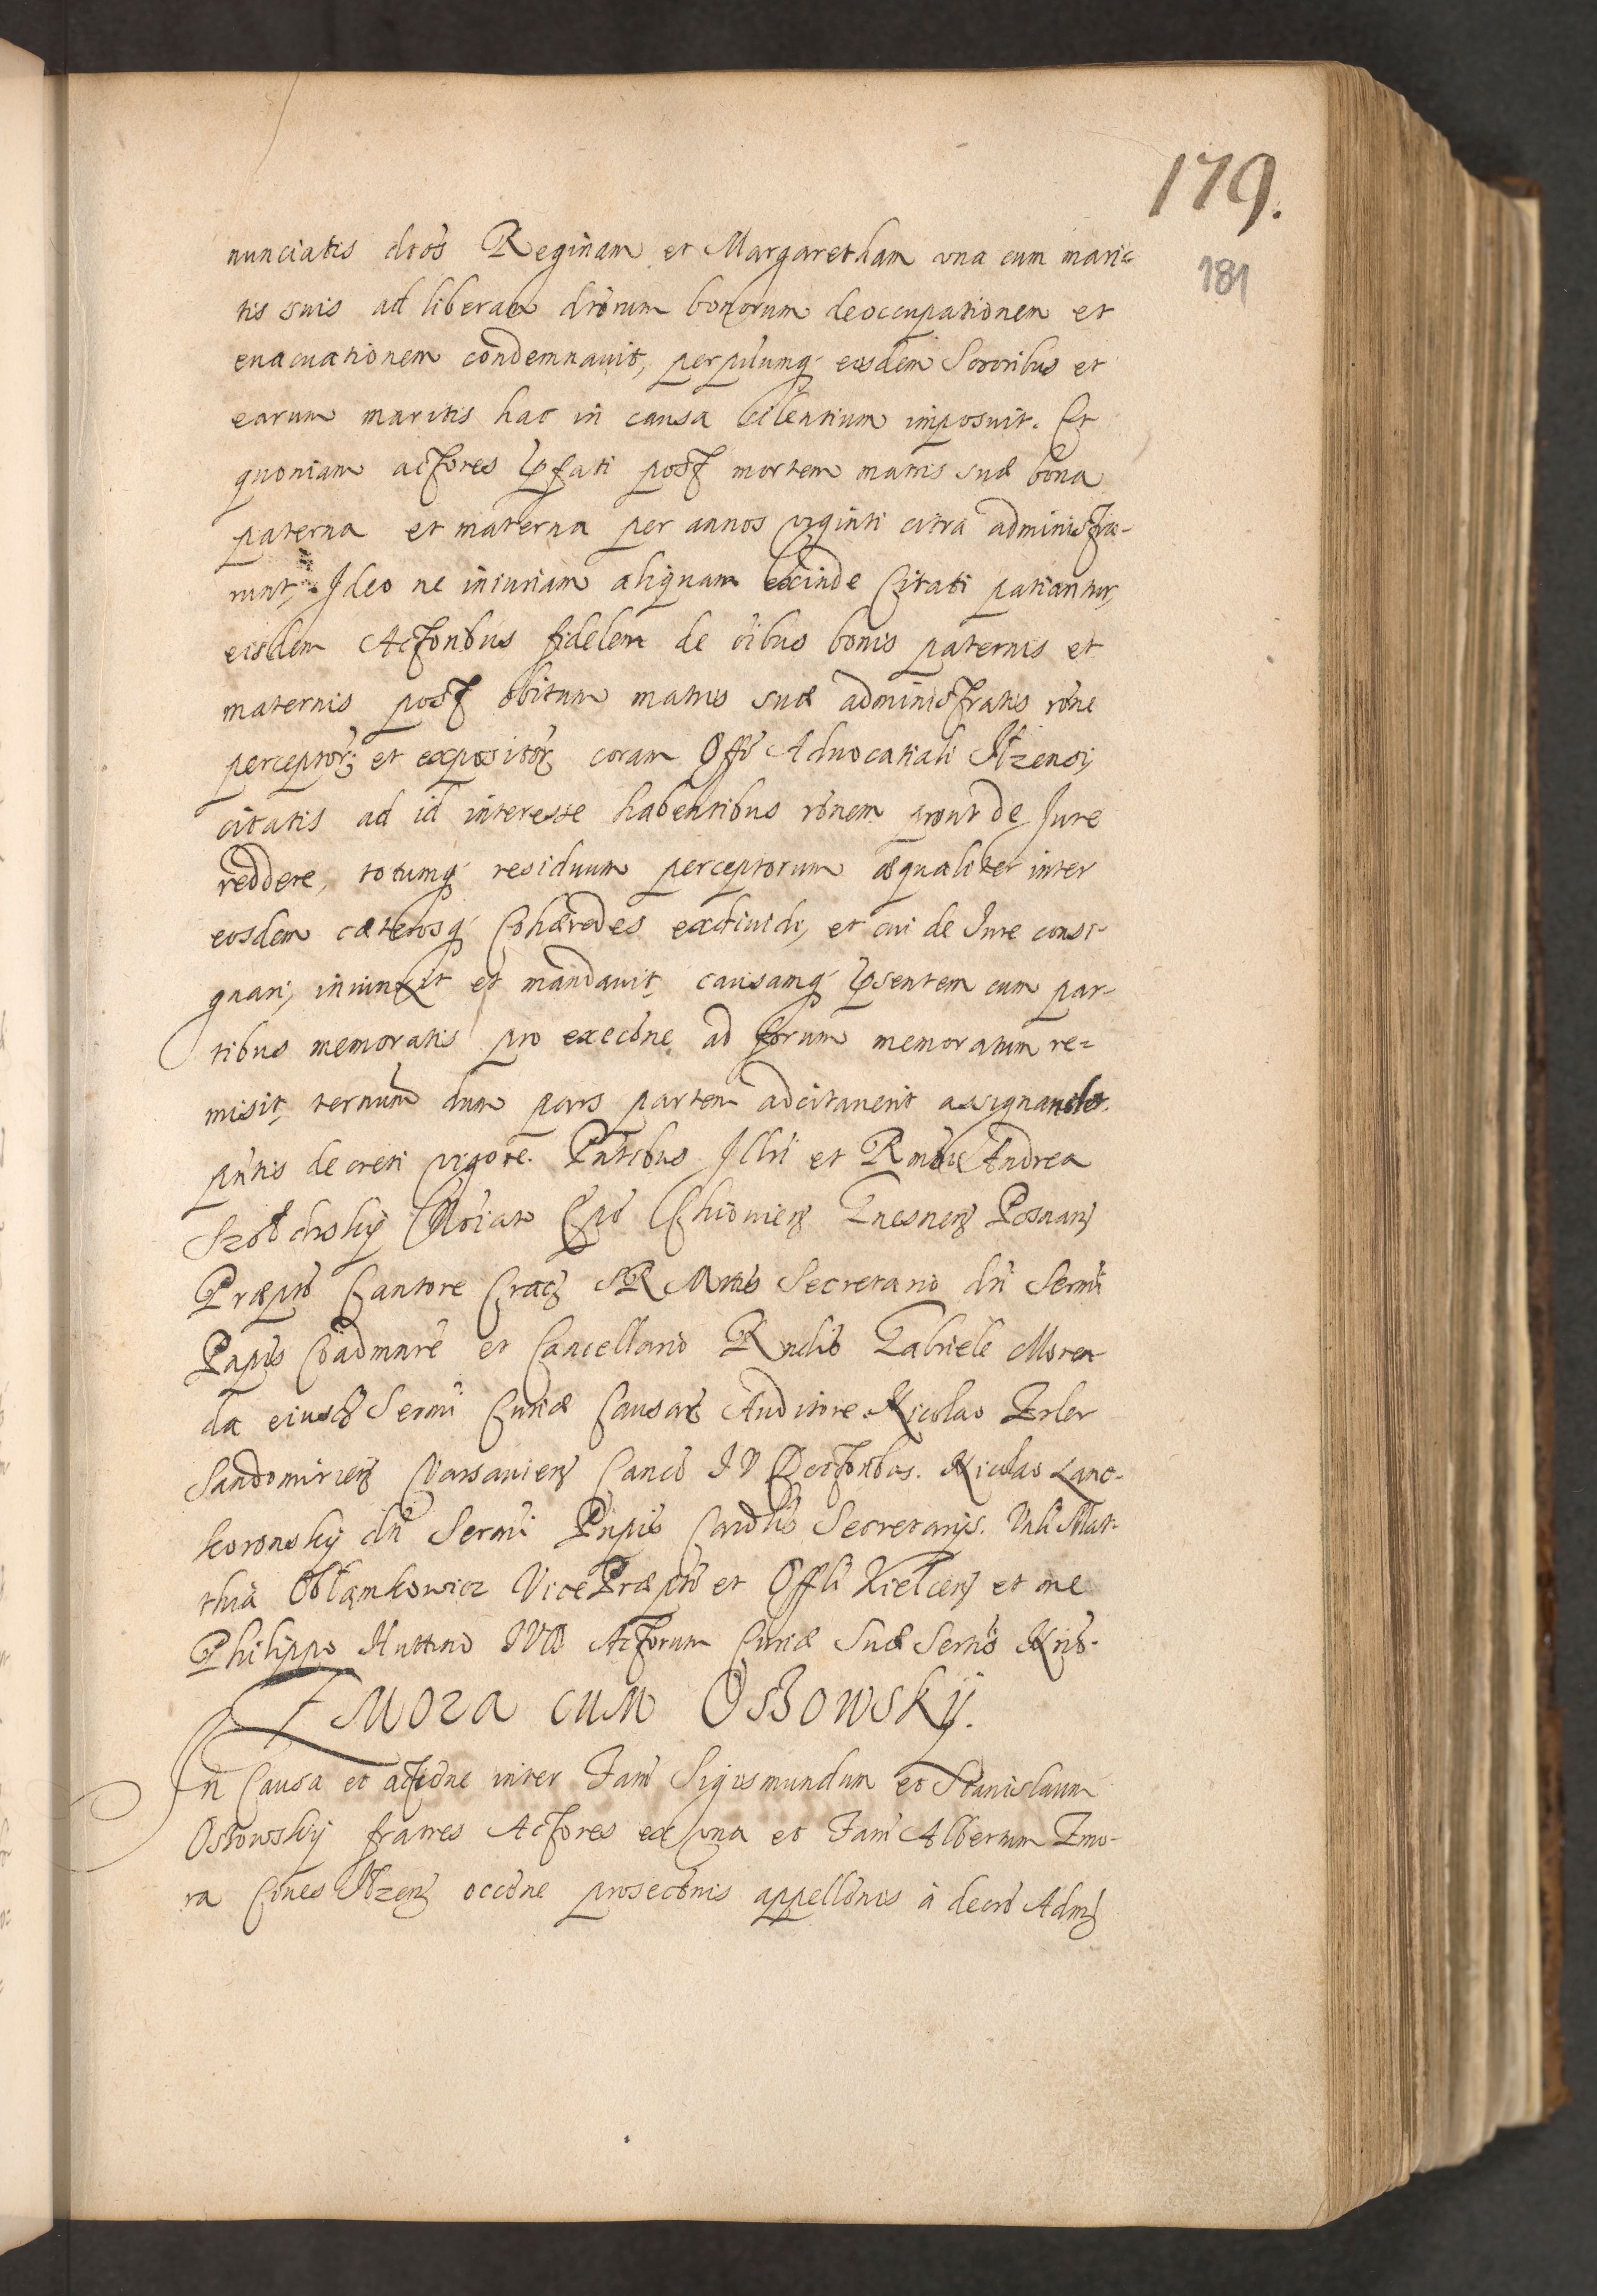 179.
181
nunciatis dtos Reginam et Margaretham vna cum mari=
tis suis ad liberam dtorum bonorum deoccupationem et
euacuationem condemnauit, perpuumq eisdem Sororibus et
earum maritis hac in causa silentium imposuit. Et
quoniam actores pfati post mortem matris suæ bona
paterna et materna per annos viginti citra administra-
runt, Ideo ne iniuriam aliquam exinde Citati patiantur,
eisdem Actoribus fidelem de oibus bonis paternis et
maternis post obitum matris suæ administratis rone
perceptorz et expositorz coram Offo Aduocatiali Ilzensi,
citatis ad id interesse habentibus ronem prout de Jure
reddere, totumq residuum perceptorum æqualiter inter
eosdem cæterosq Cohæredes exdiuidi, et cui de Jure consi-
gnari, iniunxit et mandauit, causamq psentem cum par-
tibus memoratis pro execone ad forum memoratum re=
misit, ternum dum pars partem adcitauerit assignando.
pntis decreti vigore. Pntibus Illri et Rmo Andrea
Szołdrsky Noiato Epo Chiouien Gnesnen Posnan
Præpto Cantore Crac SR Mttis Secretario dni Sermi
Pnpis Coadmnre et Cancellario Rndis Gabriele Moren
da eiusd Sermi Curiæ Causar Auditore Nicolao Erler
Sandomirien Varsauien Canco IV Doctoribus. Nicolao Lanc-
koronsky dni Sermi Pnpis Secretarijs. Mat-
thia Obłamkowicz Vice Præpto et Offli Kielcen et me
Philippo Huttino IVD Actorum Curiæ Suæ Sertis
Zmora cum Ossowskÿ.
In Causa et actione inter Fam Sigismundum et Stanislaum
Ossowskÿ fratres Actores ex vna et Fam Albertum Zmo-
ra Ciues Ilzen occone prosecconis appellonis à decro Adm